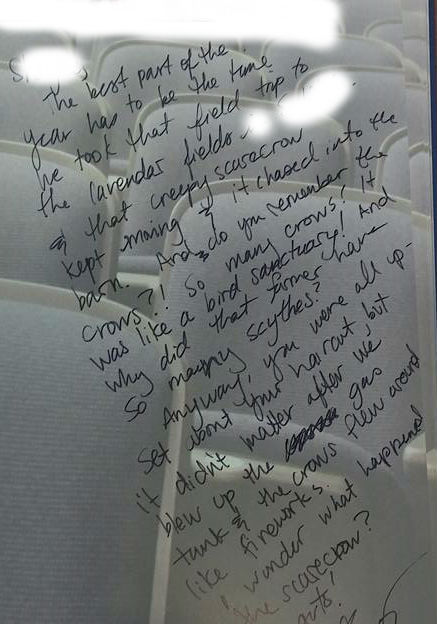 The best part of the
year has to be the time
we took that field trip to
the lavender fields
& that creepy scarecrow
kept moving & it chased into the
barn. And do you remember the
crows?! So many crows! It
was like a bird sanctuary! And
why did that farmer have
so many scythes?
Anyway, you were all up-
set about your haircut, but
it didn't matter after we
blew up the gas
tank & the crows flew around
like fireworks.
I wonder what happened
the scarecrow?